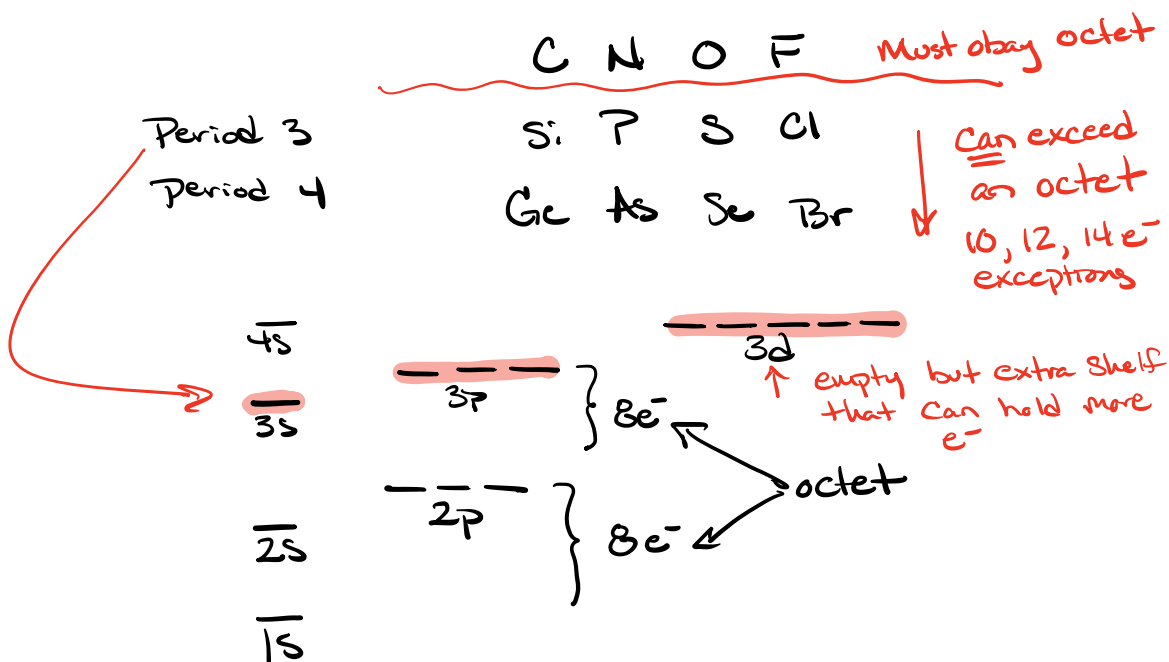 C N O F Must obay octet
Period 3 Si P S Cl
Period 4 Ge As Se Br
Can exceed
an octet
10, 12, 14 e⁻
exceptions
4s
3d
3p
3s
8e⁻
empty but extra shelf
that can hold more
e⁻
octet
2p
8e⁻
2s
1s